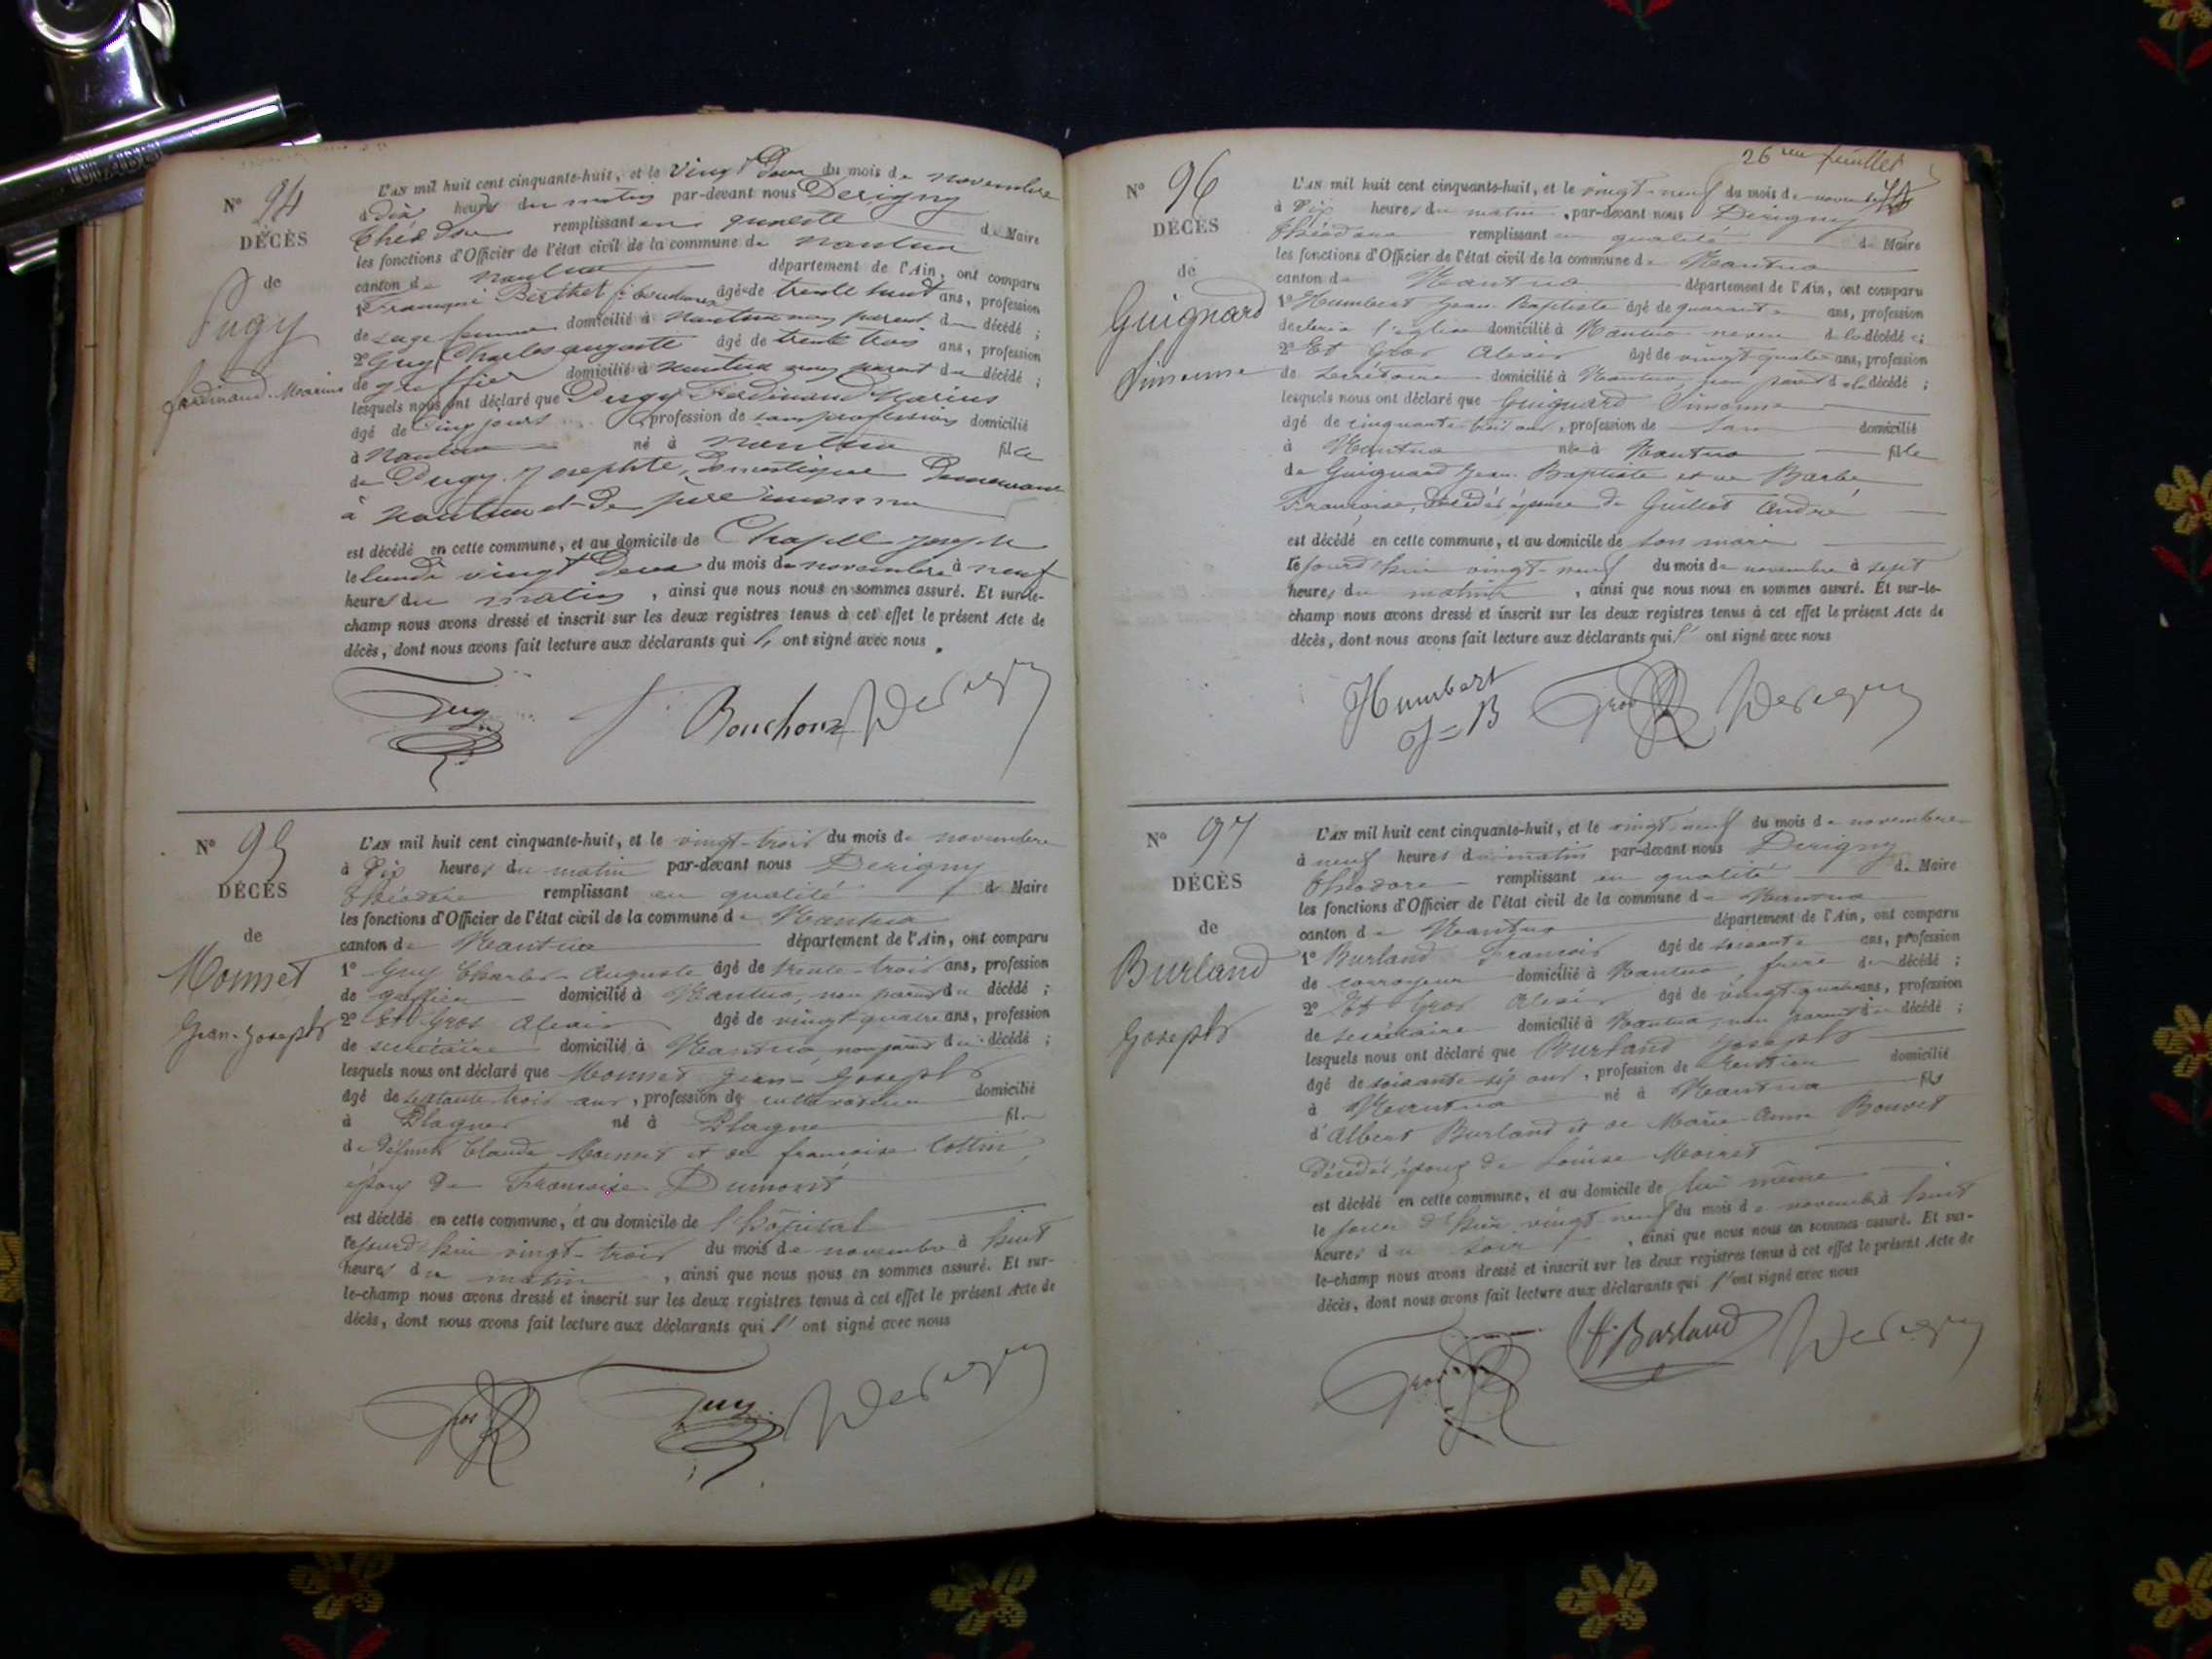 N° 94
DÉCÈS
de
Pugy
ferdinand-Marius
L'AN mil huit cent cinquante-huit, et le vingt Deux du mois de novembre
à dix heures du matin par-devant nous Derigny
Théodore remplissant en qualité de Maire
les fonctions d'Officier de l'état civil de la commune de nantua
canton de nantua département de l'Ain, ont comparu
1° Françoise Berthet âgé de trente huit ans, profession
de sage femme domicilié à Nantua non parent du décédé ;
2° Guy Charles auguste âgé de trente trois ans, profession
de greffier domicilié à nantua non parent du décédé ;
lesquels nous ont déclaré que Pugy Ferdinand Marius
âgé de Cinq jours profession de sans profession domicilié
à Nantua né à nantua fils
de Pugy Josephte, Domestique Demeurant
à nantua et de père inconnu
est décédé en cette commune, et au domicile de Chapelle joseph
le lundi vingt Deux du mois de novembre à neuf
heures du matin, ainsi que nous nous en sommes assuré. Et sur-le-
champ nous avons dressé et inscrit sur les deux registres tenus à cet effet le présent Acte de
décès, dont nous avons fait lecture aux déclarants qui l' ont signé avec nous.
Guy Bouchoux Derigny
N° 95
DÉCÈS
de
Monnet
Jean-Joseph
L'AN mil huit cent cinquante-huit, et le vingt-trois du mois de novembre
à Dix heures du matin par-devant nous Derigny
Théodore remplissant en qualité de Maire
les fonctions d'Officier de l'état civil de la commune de Nantua
canton de Nantua département de l'Ain, ont comparu
1° Guy Charles-Auguste âgé de trente-trois ans, profession
de greffier domicilié à Nantua, non parent du décédé ;
2° Et Gros Alexis âgé de vingt-quatre ans, profession
de secrétaire domicilié à Nantua, non parent du décédé ;
lesquels nous ont déclaré que Monnet Jean-Joseph
âgé de septante-trois ans, profession de cultivateur domicilié
à Plagne né à Plagne fils
de Défunts Claude Monnet et de françoise Cottin,
époux de Françoise Dumont
est décédé en cette commune, et au domicile de l'hôpital
le jourd'hui vingt-trois du mois de novembre à huit
heures du matin, ainsi que nous nous en sommes assuré. Et sur-
le-champ nous avons dressé et inscrit sur les deux registres tenus à cet effet le présent Acte de
décès, dont nous avons fait lecture aux déclarants qui l' ont signé avec nous
Gros Guy Derigny
26me feuillet
N° 96
DÉCÈS
de
Guignard
Simonne
L'AN mil huit cent cinquante-huit, et le vingt-neuf du mois de novembre
à Dix heures du matin, par-devant nous Derigny
Théodore remplissant en qualité de Maire
les fonctions d'Officier de l'état civil de la commune de Nantua
canton de Nantua département de l'Ain, ont comparu
1° Humbert Jean-Baptiste âgé de quarante ans, profession
de clerc à l'église domicilié à Nantua neveu de la décédée ;
2° Et Gros Alexis âgé de vingt-quatre ans, profession
de Secrétaire domicilié à Nantua, non parent de la décédé ;
lesquels nous ont déclaré que Guignard Simonne
âgé de cinquante-trois ans, profession de sans domicilié
à Nantua née à Nantua fille
de Guignard Jean-Baptiste et de Barbe
Françoise, Décédés épouse de Guillot André
est décédé en cette commune, et au domicile de son mari
le jourd'hui vingt-neuf du mois de novembre à sept
heures du matin, ainsi que nous nous en sommes assuré. Et sur-le-
champ nous avons dressé et inscrit sur les deux registres tenus à cet effet le présent Acte de
décès, dont nous avons fait lecture aux déclarants qui l' ont signé avec nous
Humbert Gros Derigny
J=B
N° 97
DÉCÈS
de
Burland
Joseph
L'AN mil huit cent cinquante-huit, et le vingt-neuf du mois de novembre
à neuf heures du matin par-devant nous Derigny
Théodore remplissant en qualité de Maire
les fonctions d'Officier de l'état civil de la commune de Nantua
canton de Nantua département de l'Ain, ont comparu
1° Burland François âgé de soixante ans, profession
de corroyeur domicilié à Nantua, frère du décédé ;
2° Et Gros Alexis âgé de vingt-quatre ans, profession
de secrétaire domicilié à Nantua, non parent du décédé ;
lesquels nous ont déclaré que Burland Joseph
âgé de soixante-six ans, profession de Rentier domicilié
à Nantua né à Nantua fils
d'Albert Burland et de Marie-Anne Bouvet
Décédés, époux de Louise Moiret
est décédé en cette commune, et au domicile de lui même
le jour d'hier vingt neuf du mois de novembre à huit
heures du soir, ainsi que nous nous en sommes assuré. Et sur-
le-champ nous avons dressé et inscrit sur les deux registres tenus à cet effet le présent Acte de
décès, dont nous avons fait lecture aux déclarants qui l'ont signé avec nous
Gros Burland Derigny